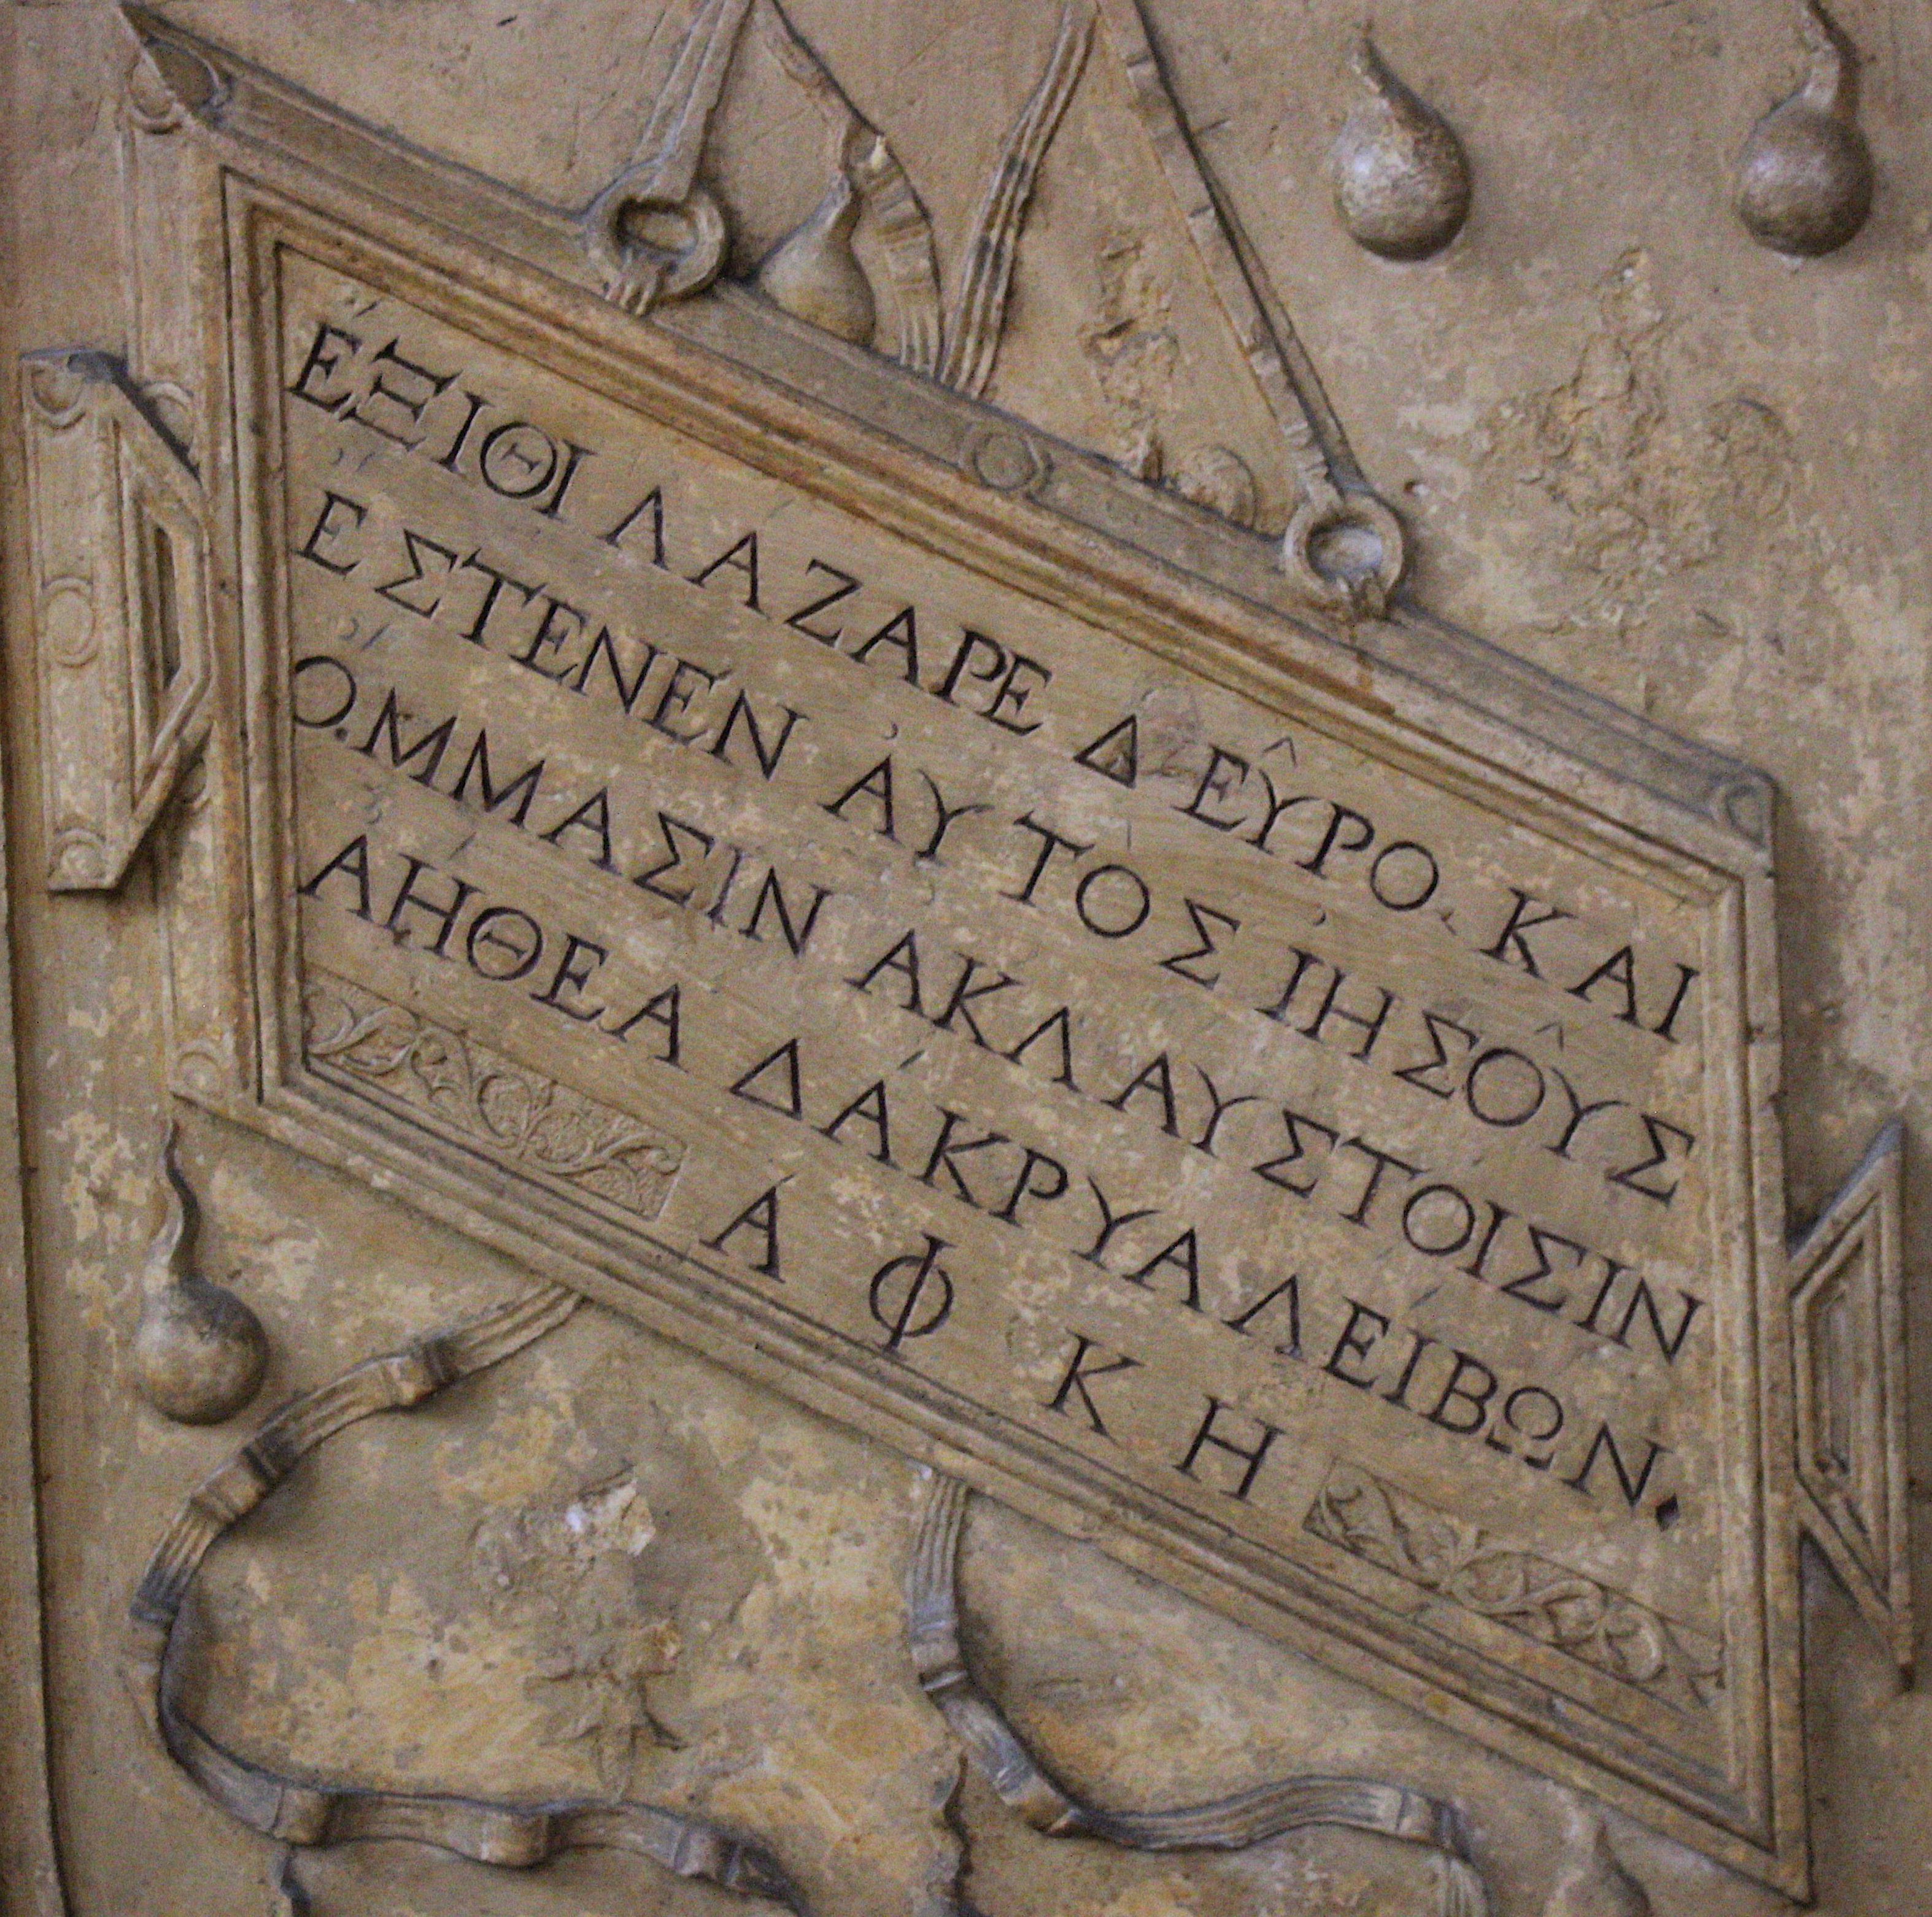 ἜΞΙΘΙ ΛΑΖΑΡΕ ΔΕΥ͂ΡΟ. ΚΑΙ
ἜΣΤΕΝΕΝ ἈΥΤῸΣ ἸΗΣΟΥ͂Σ
Ὄ.ΜΜΑΣΙΝ ΑΚΛΑΥΣΤΟΙΣΙΝ
ἈΗΘΈΑ ΔΆΚΡΥΑ ΛΕΊΒΩΝ.
Α Φ Κ Η